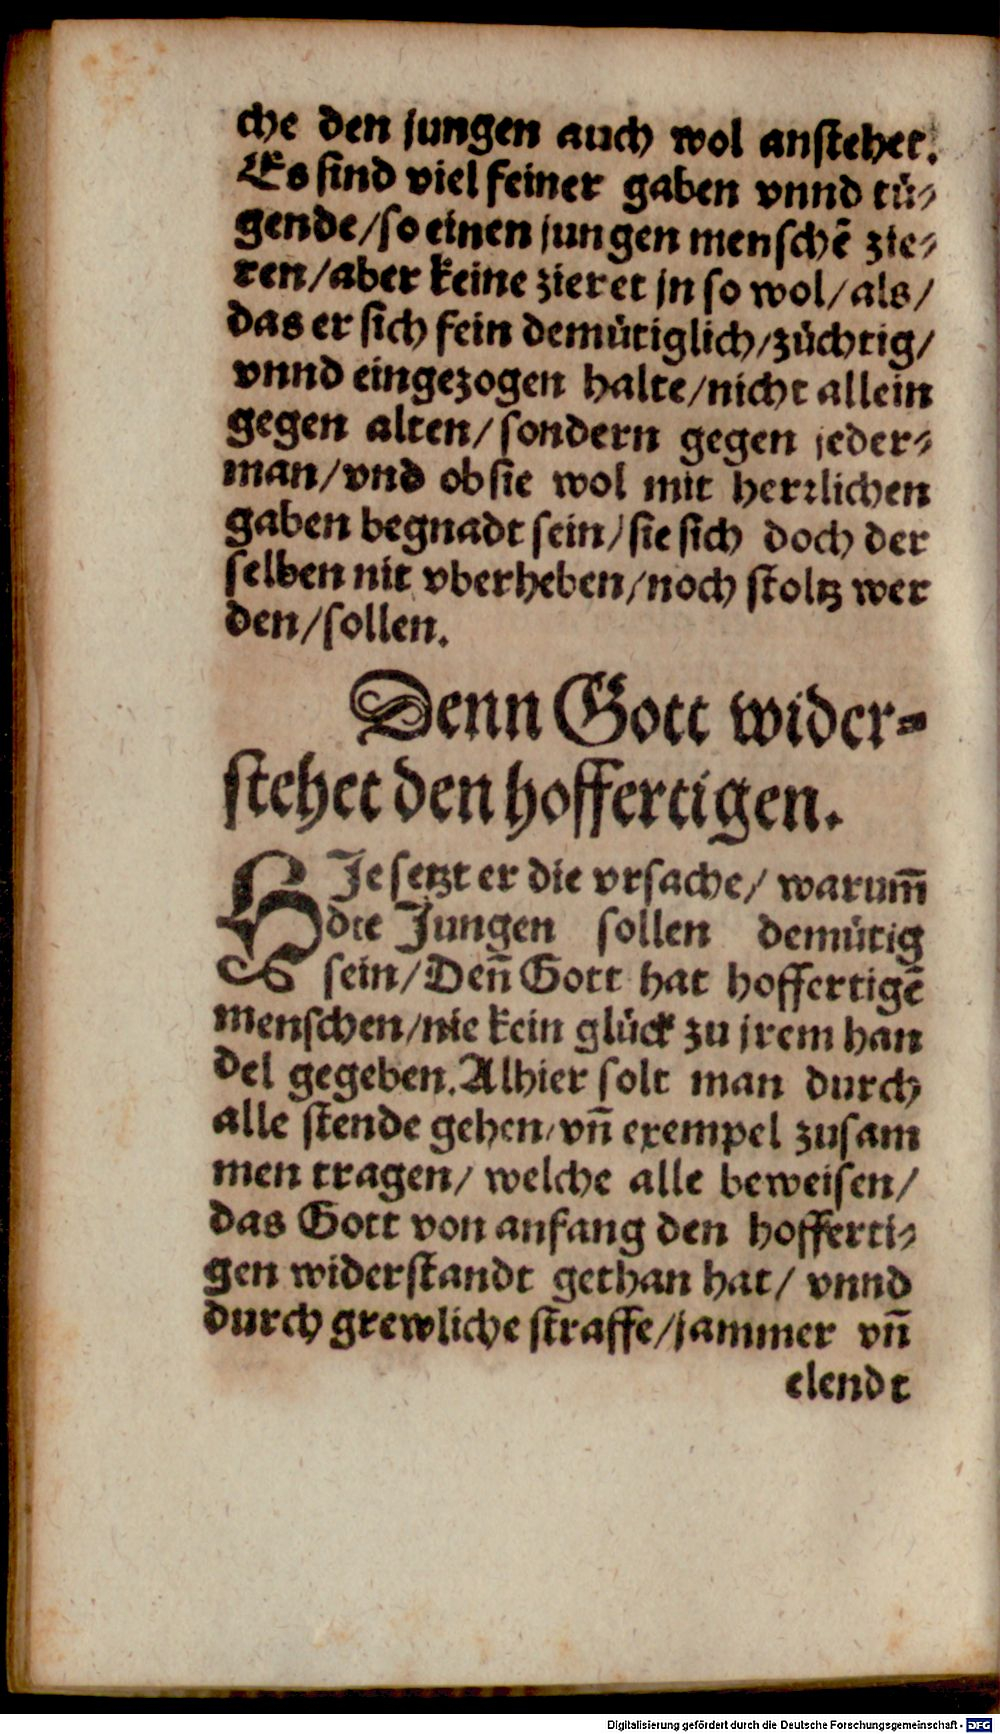 che den jungen auch wol anstehet.
Es sind viel feiner gaben vnnd tü-
gende/so einen jungen menschē zie-
ren/aber keine zieret jn so wol/als/
das er sich fein demütiglich/züchtig/
vnnd eingezogen halte/nicht allein
gegen alten/sondern gegen jeder-
man/vnd ob sie wol mit herrlichen
gaben begnadt sein/sie sich doch der
selben nit vberheben/noch stoltz wer
den/sollen.
Denn Gott wider-
stehet den hoffertigen.
HJe setzt er die vrsache/ warum̄
die Jungen sollen demütig
sein/Den̄ Gott hat hoffertigē
menschen/nie kein glück zu jrem han
del gegeben.Alhier solt man durch
alle stende gehen/vn̄ exempel zusam
men tragen/ welche alle beweisen/
das Gott von anfang den hofferti-
gen widerstandt gethan hat/ vnnd
durch grewliche straffe/jammer vn̄
elendt
Digitalisierung gefördert durch die Deutsche Forschungsgemeinschaft - DFG